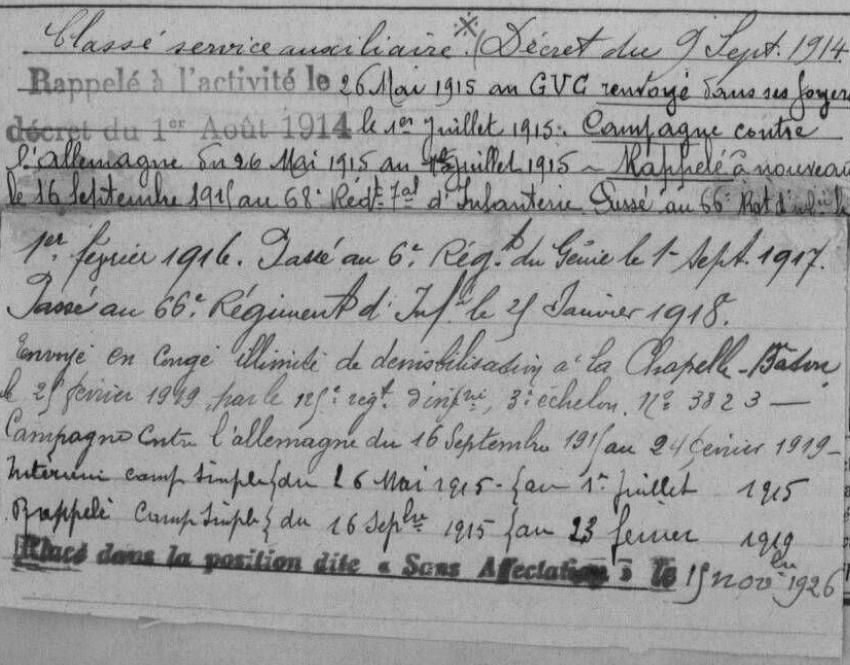 Classé service auxiliaire ※ (Décret du 9 Sept. 1914
Rappelé à l'activité le 26 Mai 1915 au GVC renvoyé dans ses foyers
décret du 1er Août 1914 le 1er Juillet 1915. Campagne contre
l'Allemagne du 26 Mai 1915 au 1er juillet 1915 – Rappelé à nouveau
le 16 Septembre 1915 au 68e Régt 7al d'Infanterie Passé au 66e Rgt d'infie le
1er février 1916. Passé au 6e Rég.t du Génie le 1er Sept. 1917.
Passé au 66e Régiment d'Infie le 25 Janvier 1918.
Envoyé en congé illimité de démobilisation à la Chapelle-Bâton
le 25 février 1919, par le 125e régt. d'infrie, 3e échelon, No 3823 —
Campagne contre l'allemagne du 16 Septembre 1915 au 24 février 1919 –
Intérieur camp simple { du 26 Mai 1915 - { au 1er juillet 1915
Rappelé Camp simple { du 16 Sepbre 1915 { au 23 fevrier 1919
Placé dans la position dite « Sans Affectation » le 15 novbre 1926